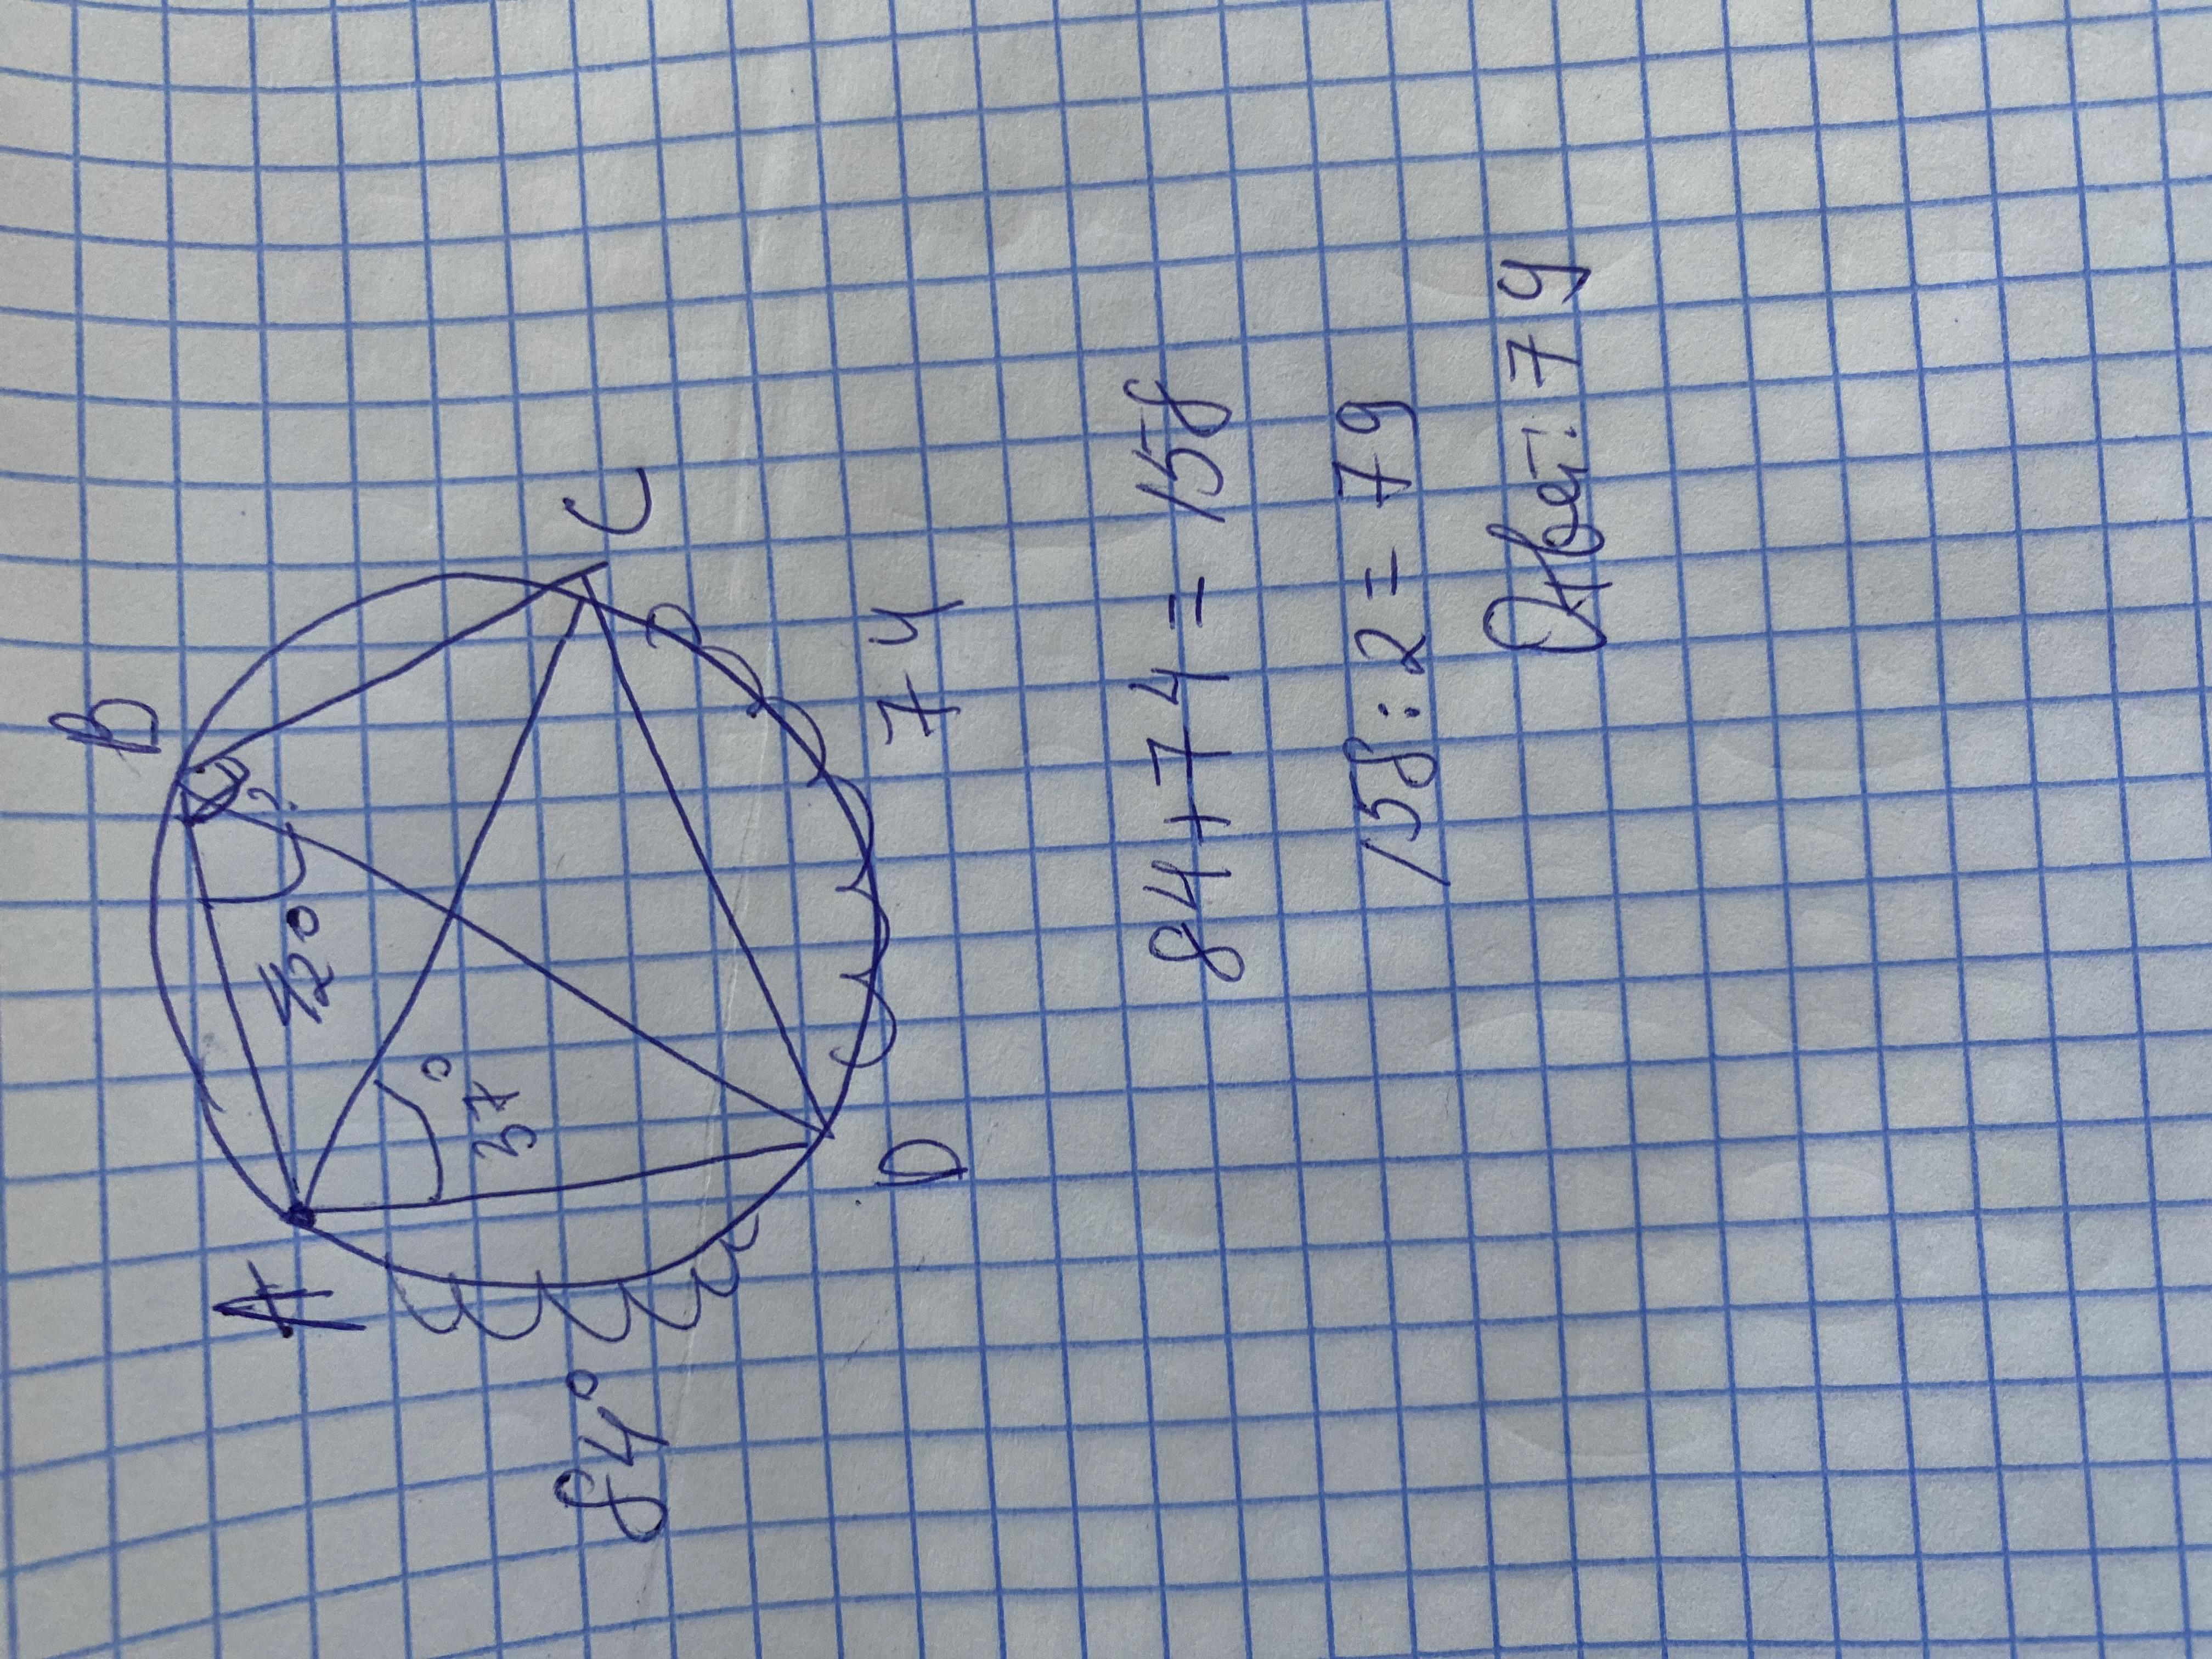 B
A
42°
?
37°
84°
C
D
74
84+74=158
158:2=79
Ответ: 79